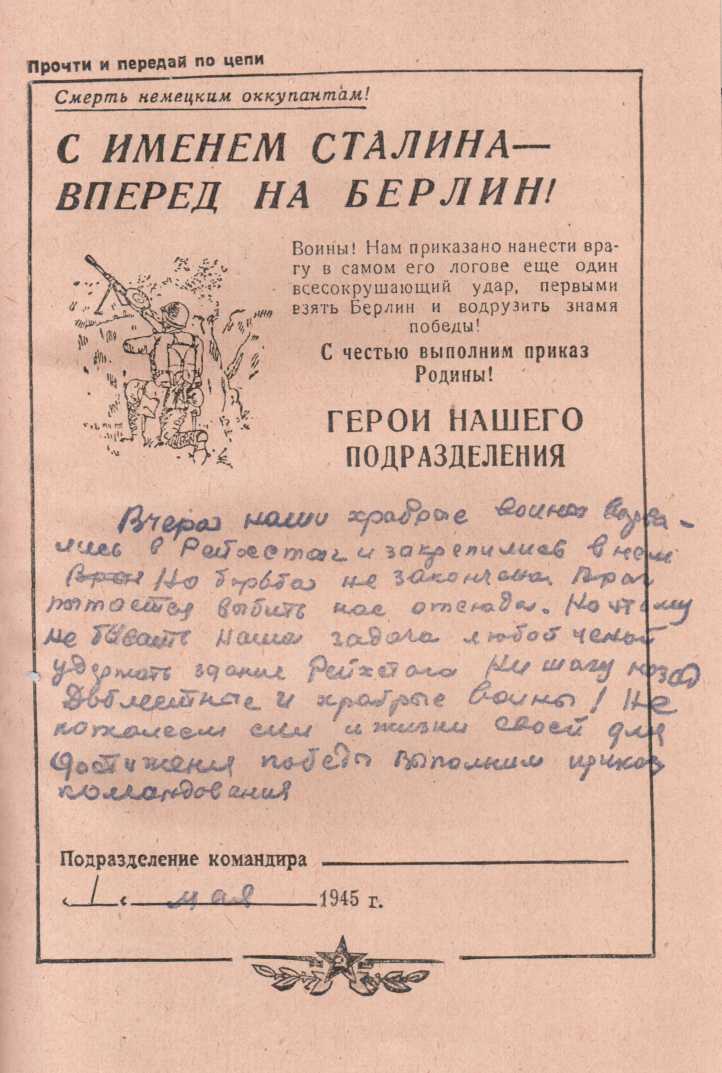 Прочти и передай по цепи
Смерть немецким оккупантам!
С ИМЕНЕМ СТАЛИНА—
ВПЕРЕД НА БЕРЛИН!
Воины! Нам приказано нанести вра-
гу в самом его логове еще один
всесокрушающий удар, первыми
взять Берлин и водрузить знамя
победы!
С честью выполним приказ
Родины!
ГЕРОИ НАШЕГО
ПОДРАЗДЕЛЕНИЯ
Вчера наши храбрые воины ворва-
лись в Рейхстаг и закрепились в нем
Враг Но борьба не закончена. Враг
пытается выбить нас отсюда. Но этому
не бывать Наша задача любой ценой
удержать здание Рейхстага Ни шагу назад
Доблестные и храбрые воины! Не
пожалеем сил и жизни своей для
достижения победы Выполним приказ
командования
Подразделение командира
„ 1 „ мая 1945 г.